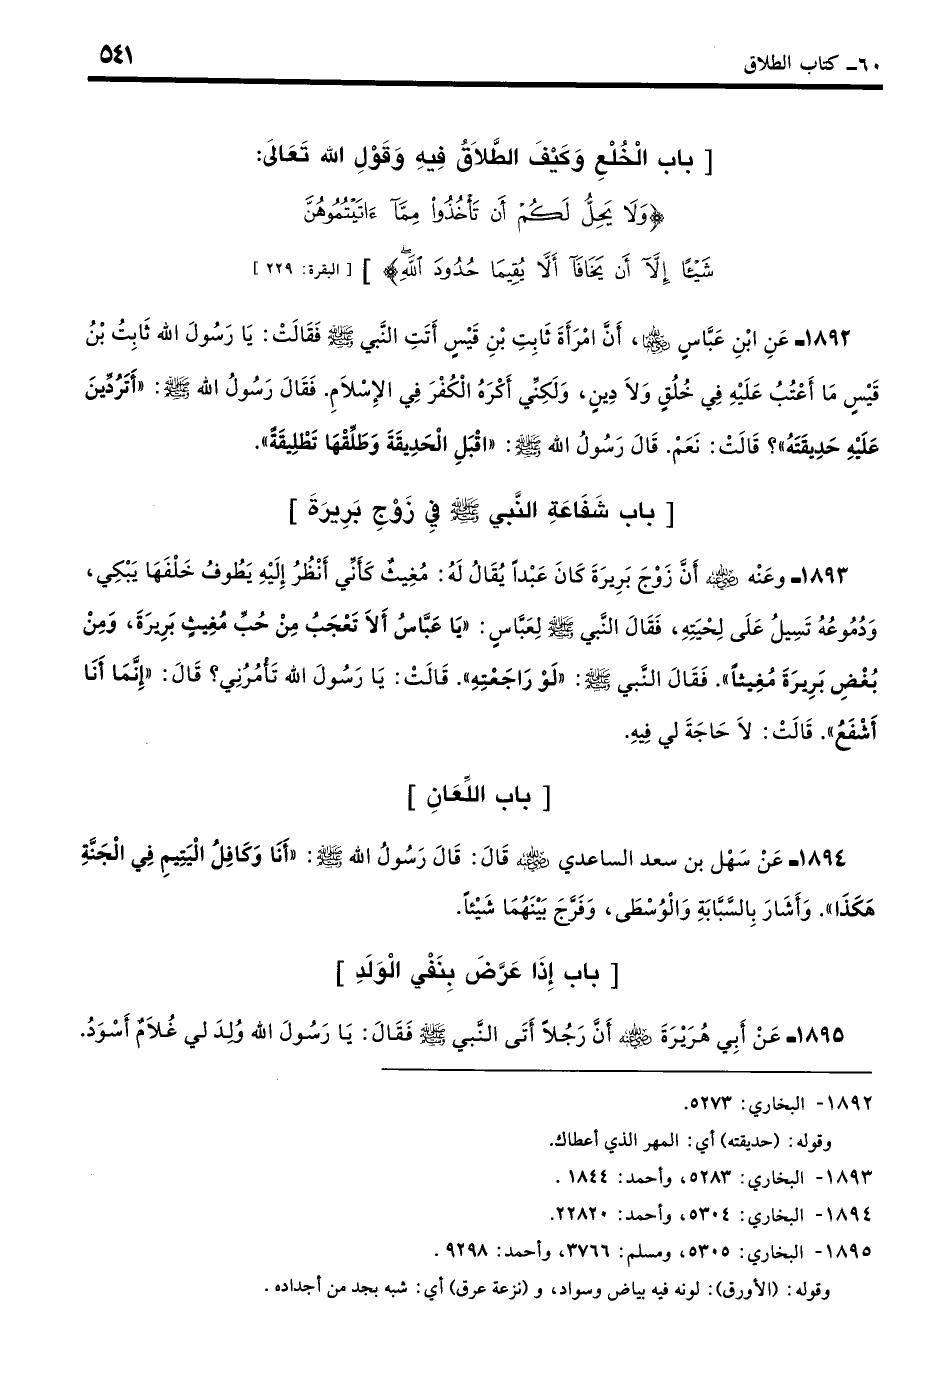 ٦٠ـ كتاب الطلاق
٥٤١
[ باب الْخُلْعِ وَكَيْفَ الطَّلاَقُ فِيهِ وَقَوْلِ الله تَعَالىَ:
﴿وَلَا يَحِلُّ لَكُمْ أَن تَأْخُذُوا۟ مِمَّآ ءَاتَيْتُمُوهُنَّ
شَيْـًٔا إِلَّآ أَن يَخَافَآ أَلَّا يُقِيمَا حُدُودَ ٱللَّهِۖ﴾ ] [ البقرة: ٢٢٩ ]
١٨٩٢ـ عَنِ ابْنِ عَبَّاسٍ رضي الله عنهما، أَنَّ امْرَأَةَ ثَابِتِ بْنِ قَيْسٍ أَتَتِ النَّبي ﷺ فَقَالَتْ: يَا رَسُولَ الله ثَابِتُ بْنُ
قَيْسٍ مَا أَعْتُبُ عَلَيْهِ فِي خُلُقٍ وَلاَ دِينٍ، وَلَكِنِّي أَكْرَهُ الْكُفْرَ فِي الإِسْلاَمِ. فَقَالَ رَسُولُ الله ﷺ: «أَتَرُدِّينَ
عَلَيْهِ حَدِيقَتَهُ»؟ قَالَتْ: نَعَمْ. قَالَ رَسُولُ الله ﷺ: «اقْبَلِ الْحَدِيقَةَ وَطَلِّقْهَا تَطْلِيقَةً».
[ باب شَفَاعَةِ النَّبي ﷺ فِي زَوْجِ بَرِيرَةَ ]
١٨٩٣ـ وعَنْه رضي الله عنه أَنَّ زَوْجَ بَرِيرَةَ كَانَ عَبْداً يُقَالُ لَهُ: مُغِيثٌ كَأَنِّي أَنْظُرُ إِلَيْهِ يَطُوفُ خَلْفَهَا يَبْكِي،
وَدُمُوعُهُ تَسِيلُ عَلَى لِحْيَتِهِ، فَقَالَ النَّبي ﷺ لِعَبَّاسٍ: «يَا عَبَّاسُ أَلاَ تَعْجَبُ مِنْ حُبِّ مُغِيثٍ بَرِيرَةَ، وَمِنْ
بُغْضِ بَرِيرَةَ مُغِيثاً». فَقَالَ النَّبي ﷺ: «لَوْ رَاجَعْتِهِ». قَالَتْ: يَا رَسُولَ الله تَأْمُرُنِي؟ قَالَ: «إِنَّمَا أَنَا
أَشْفَعُ». قَالَتْ: لاَ حَاجَةَ لي فِيهِ.
[ باب اللِّعَانِ ]
١٨٩٤ـ عَنْ سَهْل بن سعد الساعدي رضي الله عنه قَالَ: قَالَ رَسُولُ الله ﷺ: «أَنَا وَكَافِلُ الْيَتِيمِ فِي الْجَنَّةِ
هَكَذَا». وَأَشَارَ بِالسَّبَّابَةِ وَالْوُسْطَى، وَفَرَّجَ بَيْنَهُمَا شَيْئاً.
[ باب إِذَا عَرَّضَ بِنَفْيِ الْوَلَدِ ]
١٨٩٥ـ عَنْ أَبِي هُرَيْرَةَ رضي الله عنه أَنَّ رَجُلاً أَتَى النَّبي ﷺ فَقَالَ: يَا رَسُولَ الله وُلِدَ لي غُلاَمٌ أَسْوَدُ.
١٨٩٢- البخاري: ٥٢٧٣.
وقوله: (حديقته) أي: المهر الذي أعطاك.
١٨٩٣- البخاري: ٥٢٨٣، وأحمد: ١٨٤٤ .
١٨٩٤- البخاري: ٥٣٠٤، وأحمد: ٢٢٨٢٠.
١٨٩٥- البخاري: ٥٣٠٥، ومسلم: ٣٧٦٦، وأحمد: ٩٢٩٨ .
وقوله: (الأورق): لونه فيه بياض وسواد، و (نزعة عرق) أي: شبه بجد من أجداده .